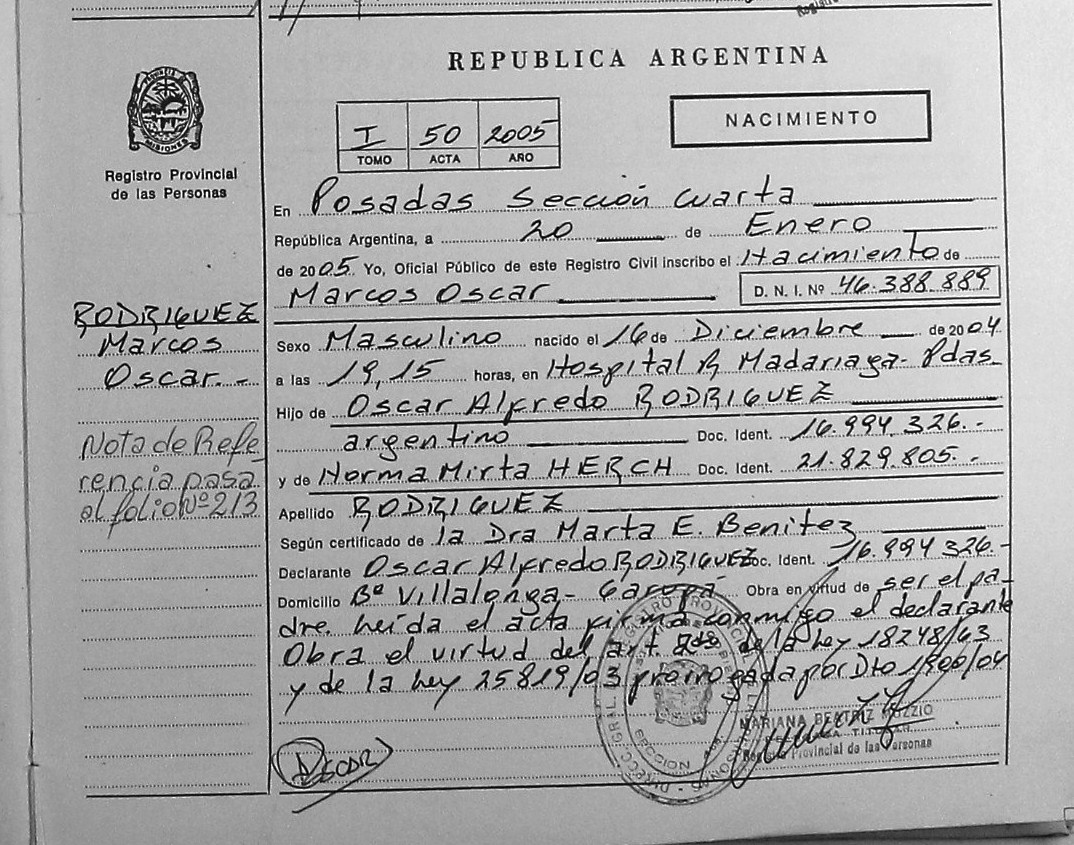 REPUBLICA ARGENTINA
PROVINCIA
MISIONES
Registro Provincial
de las Personas
I 50 2005
TOMO ACTA AÑO
NACIMIENTO
En Posadas Sección Cuarta
República Argentina, a 20 de Enero
de 2005. Yo, Oficial Público de este Registro Civil inscribo el Nacimiento de
Marcos Oscar D. N. I. Nº 46.388.889
RODRIGUEZ
Marcos
Oscar.-
Sexo Masculino nacido el 16 de Diciembre de 2004
a las 19,15 horas, en Hospital R Madariaga- Pdas.
Hijo de Oscar Alfredo RODRIGUEZ
argentino Doc. Ident. 16.994.326.-
y de Norma Mirta HERCH Doc. Ident. 21.829.805.-
Apellido RODRIGUEZ
Nota de Refe
rencia pasa
al folio Nº 213
Según certificado de la Dra Marta E. Benitez
Declarante Oscar Alfredo RODRIGUEZ Doc. Ident. 16.994.326.-
Domicilio Bº Villalonga- Garupá Obra en virtud de ser el pa-
dre. Leida el acta firma conmigo el declarante
Obra el virtud del art. de la ley 18248/63
y de la ley 25819/03 prorrogada por Dto 1900/04
MARIANA BEATRIZ
Registro Provincial de las Personas
SECCION